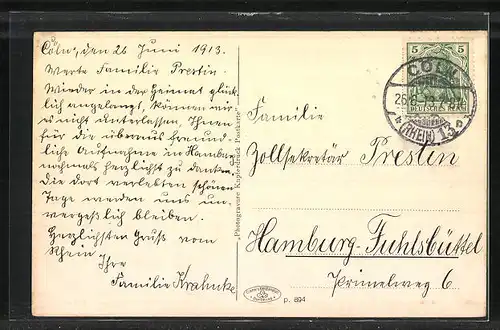 Cöln, den 26 Juni 1913.
Werte Familie Prestin.
Wieder in der Heimat glück-
lich angelangt, können wir
es nicht unterlassen, Ihnen
für die überaus freund-
liche Aufnahme in Hamburg
nochmals herzlichst zu danken,
die dort verlebten schönen
Tage werden uns un-
vergeßlich bleiben.
Herzlichsten Gruß vom
Rhein.
Ihre
Familie Krahnke
Photogravure Kupferdruck Postkarte
5 5
DEUTSCHES REICH
CÖLN
(RHEIN)
Familie
Zollsekretär Prestin
Hamburg-Fuhlsbüttel
Primelweg 6
p. 894